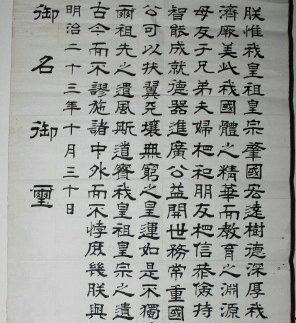 朕惟我皇祖皇宗肇國宏遠樹德深厚我
濟厥美此我國體之精華而教育之淵源
母友于兄弟夫婦相和朋友相信恭儉持
智能成就德器進廣公益開世務常重國
公可以扶翼天壤無窮之皇運如是不獨
爾祖先之遺風斯道實我皇祖皇宗之遺
古今而不謬施諸中外而不悖庶幾朕與
明治二十三年十月三十日
御名御璽